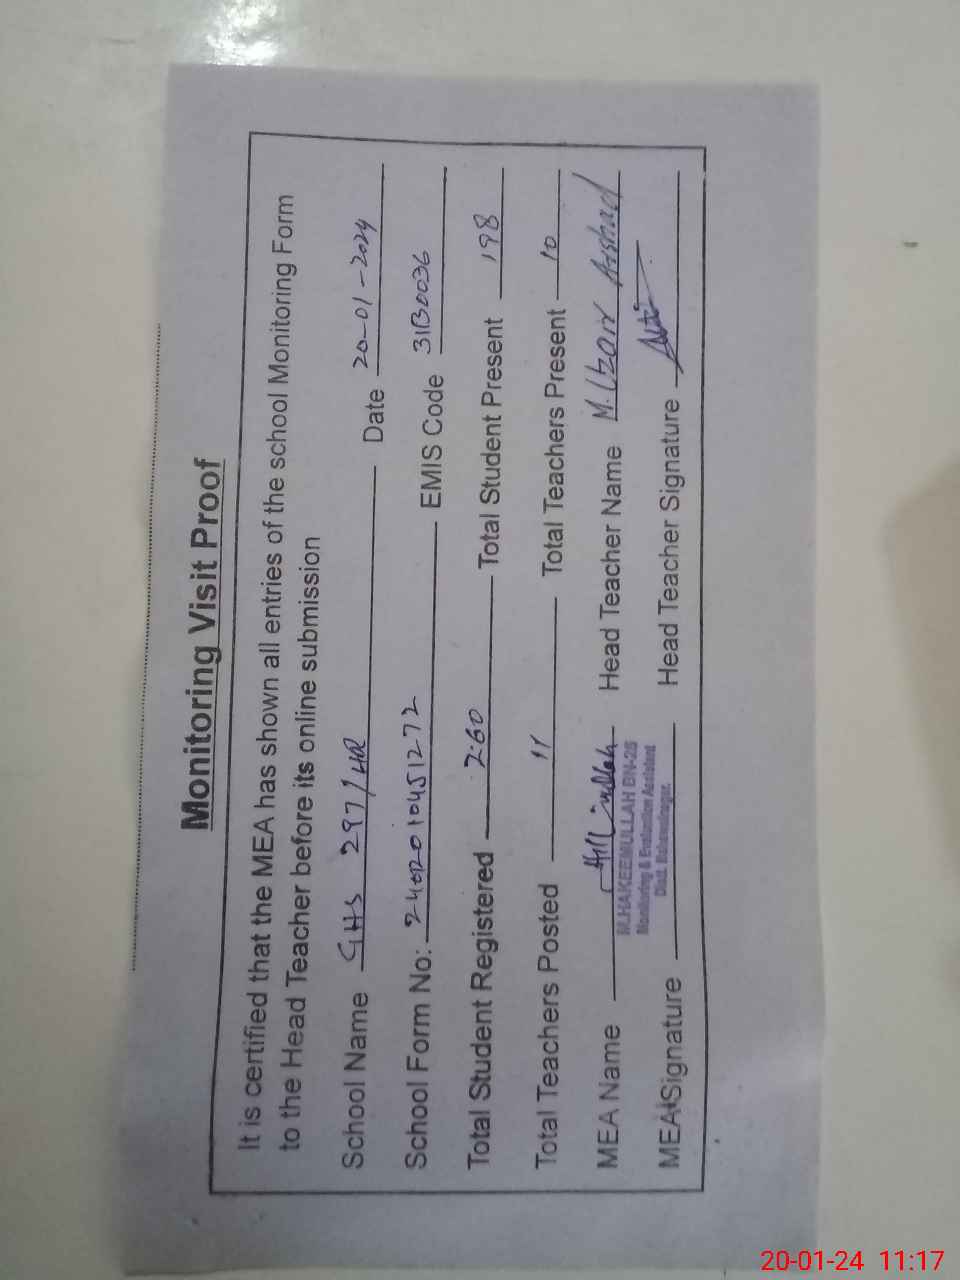 Monitoring Visit Proof
It is certified that the MEA has shown all entries of the school Monitoring Form
to the Head Teacher before its online submission
School Name GHS 297/HR Date 20-01-2024
School Form No: 24012010451272 EMIS Code 31130036
Total Student Registered 260 Total Student Present 198
Total Teachers Posted 11 Total Teachers Present 10
MEA Name Head Teacher Name M. Uzair Arshad
M.HAKEEMULLAH BN-25
Monitoring & Evaluation Assistant
Distt. Bahawalnagar.
MEA Signature Head Teacher Signature
20-01-24 11:17